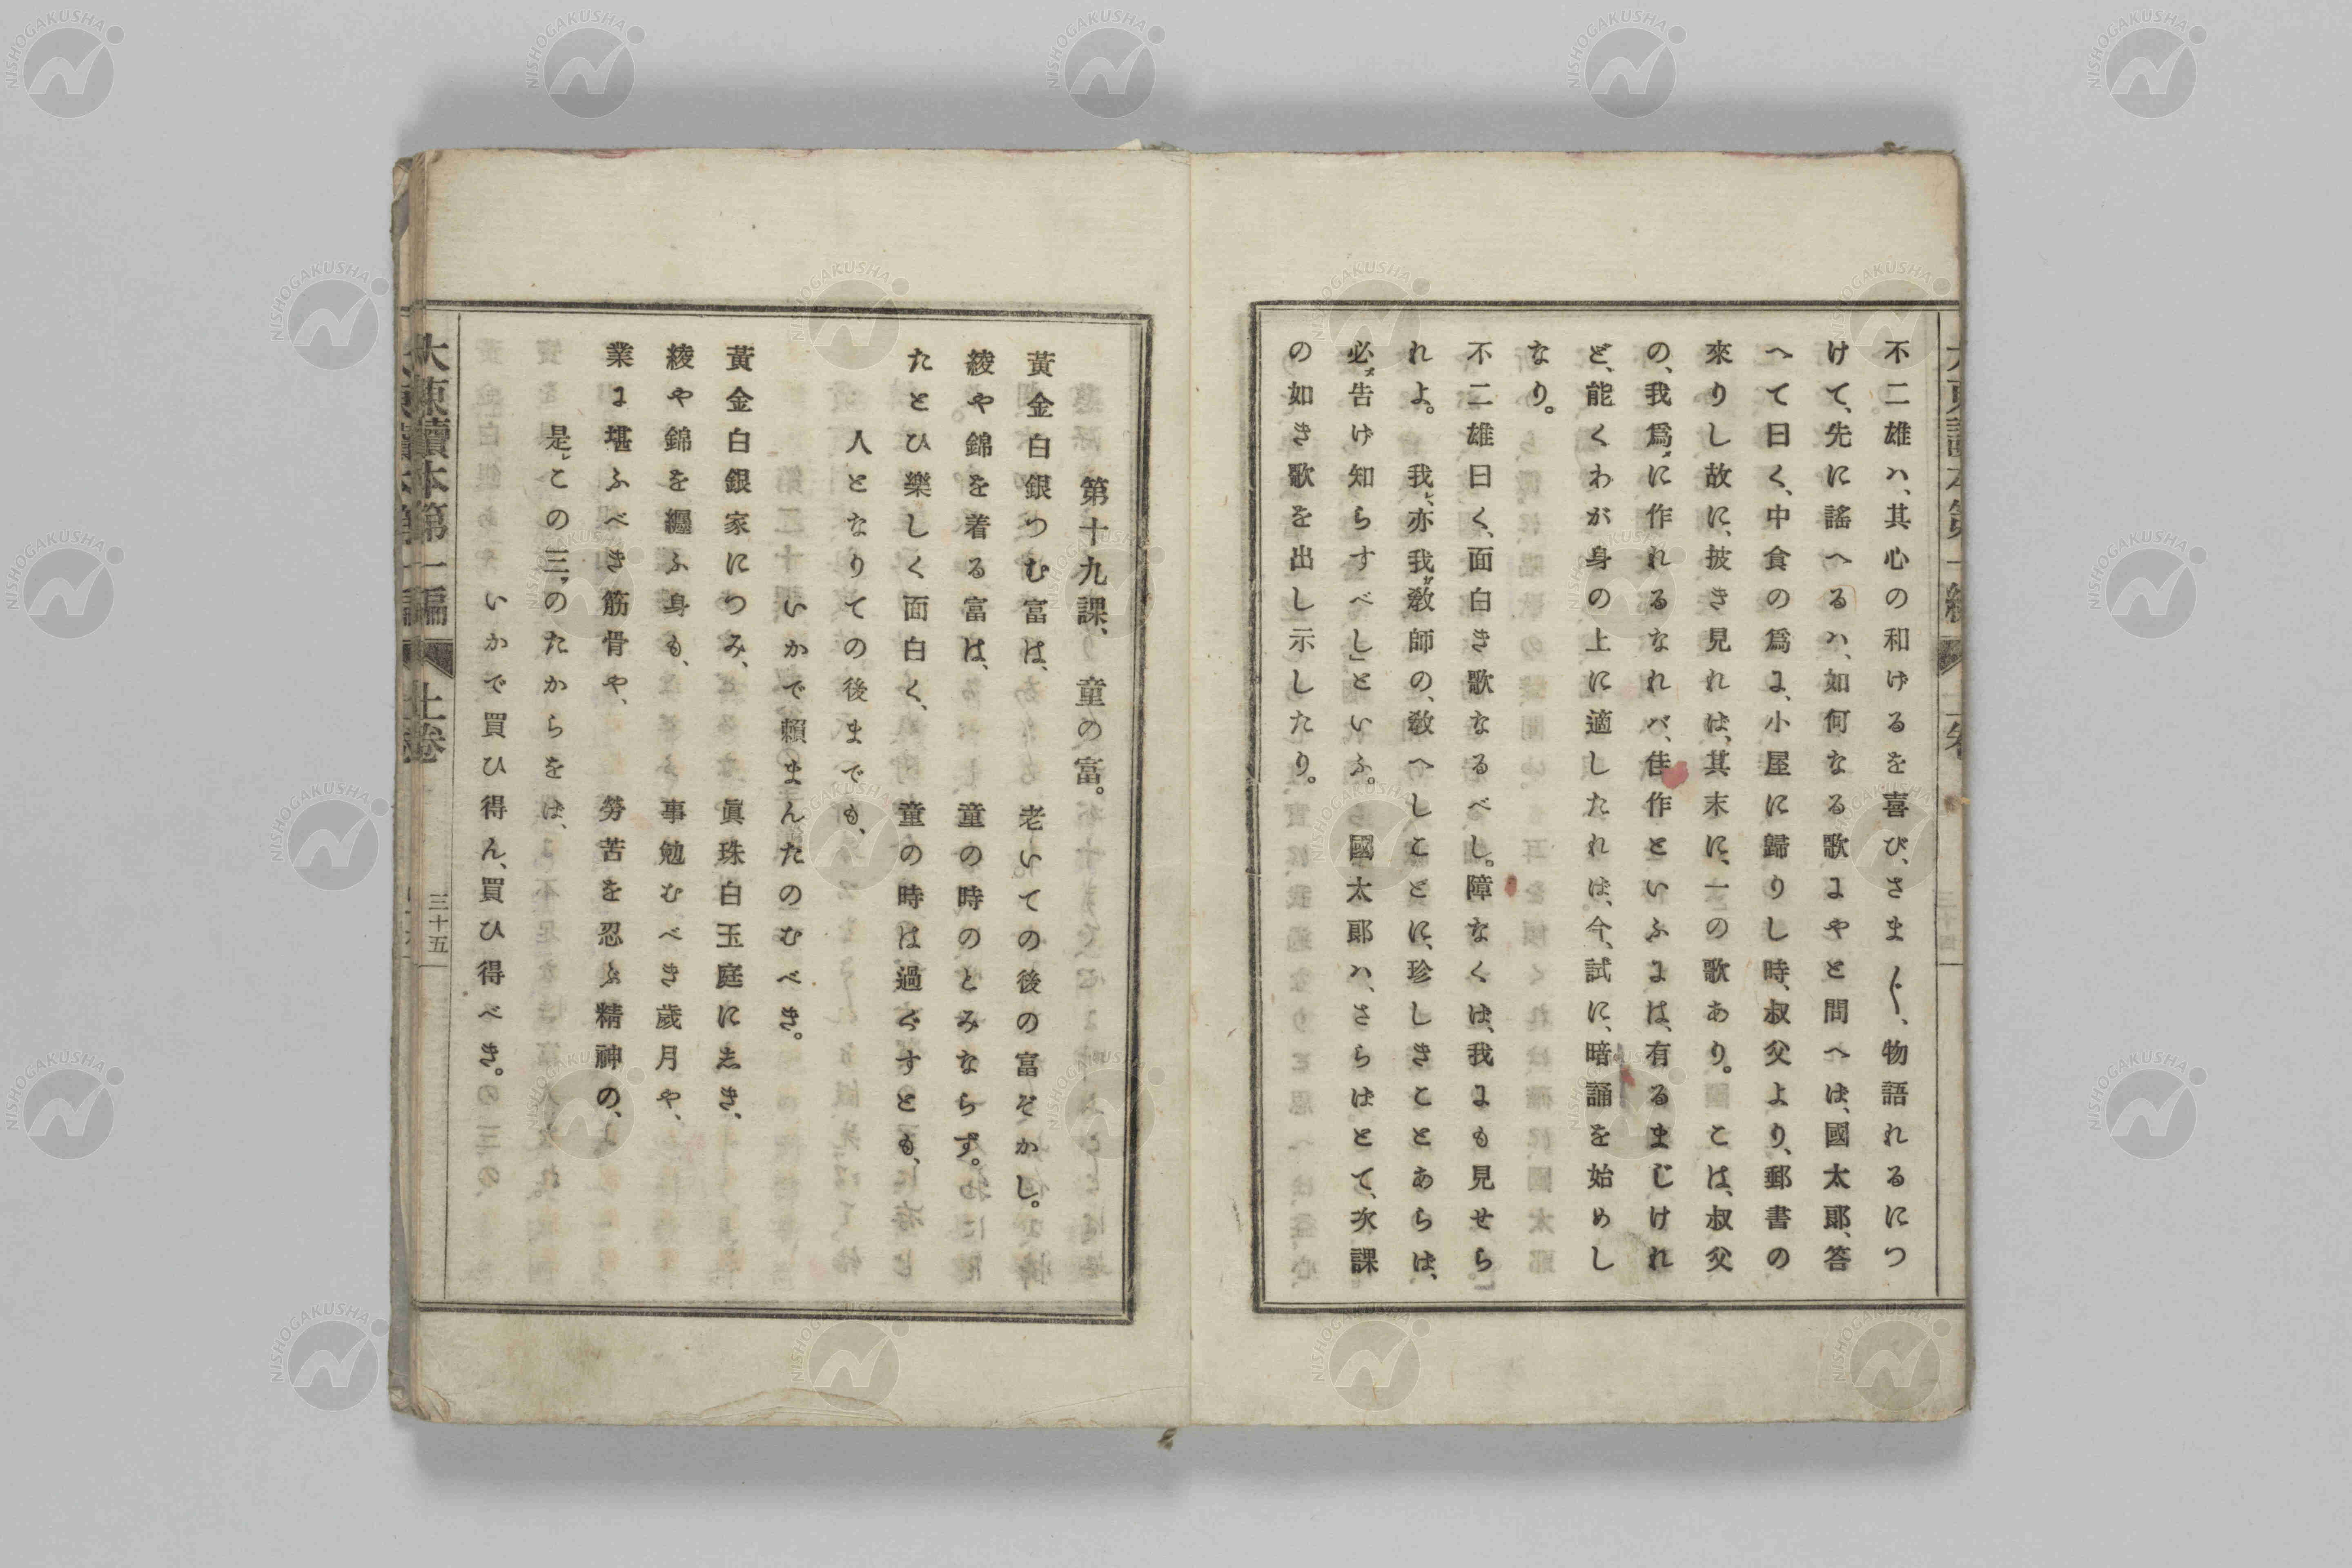 不二雄ハ、其心の和げるを喜び、さま〱、物語れるにつ
けて、先に謠へるハ、如何なる歌よやと問へは、國太郎、答
へて曰く、中食の爲よ、小屋に歸りし時、叔父より、郵書の
來りし故に、披き見れは、其末に、一の歌あり。こは、叔父
の、我爲メに作れるなれバ、佳作といふよは、有るまじけれ
ど、能くわが身の上に適したれは、今、試に、暗誦を始めし
なり。
不二雄曰く、面白き歌なるべし。障なくは、我よも見せら
れよ。我レ、亦我ガ教師の、教へしことに、珍しきことあらは、
必ズ告げ知らすべし」といふ。國太郎ハ、さらはとて、次課
の如き歌を出し示したり。
第十九課、童の富。
黃金白銀つむ富は、老いての後の富ぞかし。
綾や錦を着る富は、童の時のとみならず。
たとひ樂しく面白く、童の時は過ぐすとも、
人となりての後までも、
いかで賴まんたのむべき。
黃金白銀家につみ、眞珠白玉庭にしき、
綾や錦を纒ふ身も、事勉むべき歲月や、
業よ堪ふべき筋骨や、勞苦を忍ふ精神の、
是レこの三ツのたからをは、
いかで買ひ得ん、買ひ得べき。
大東讀本第一編 上卷 三十五